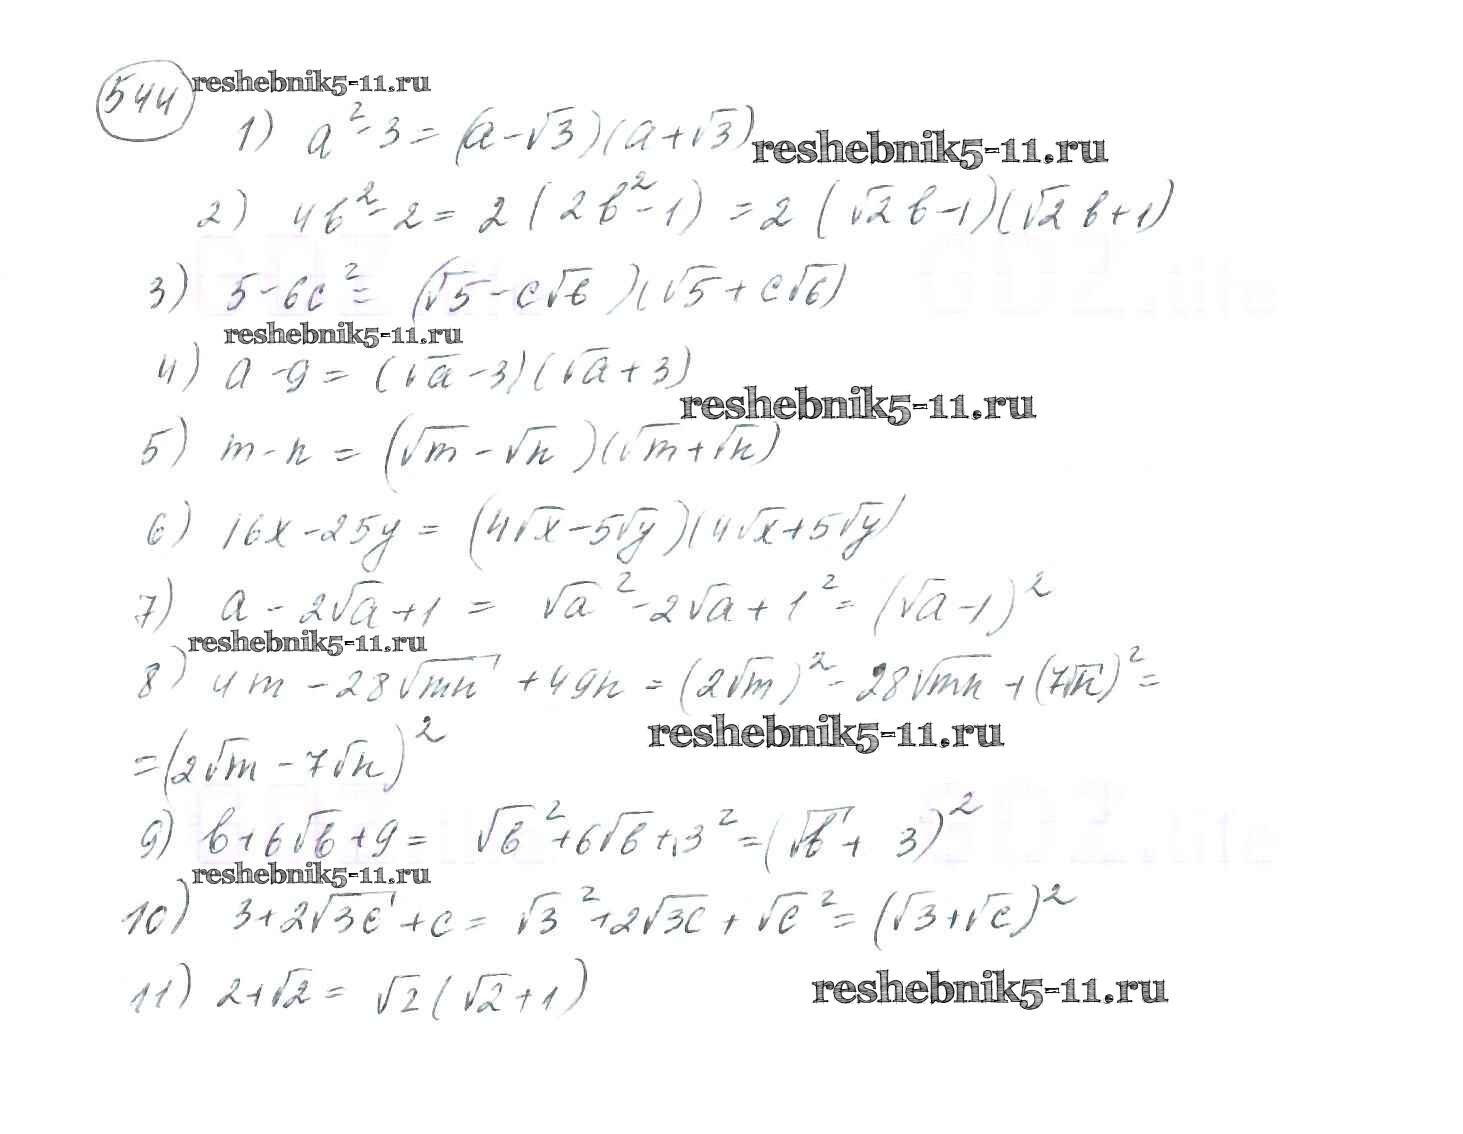 544 reshebnik5-11.ru
1) a² - 3 = (a - √3)(a + √3) reshebnik5-11.ru
2) 4b² - 2 = 2(2b² - 1) = 2(√2 b - 1)(√2 b + 1)
GDZ.life GDZ.life
3) 5 - 6c² = (√5 - c√6)(√5 + c√6)
reshebnik5-11.ru
4) a - 9 = (√a - 3)(√a + 3)
reshebnik5-11.ru
5) m - n = (√m - √n)(√m + √n)
6) 16x - 25y = (4√x - 5√y)(4√x + 5√y)
7) a - 2√a + 1 = √a² - 2√a + 1² = (√a - 1)²
reshebnik5-11.ru
8) 4m - 28√mn + 49n = (2√m)² - 28√mn + (7√n)² =
reshebnik5-11.ru
= (2√m - 7√n)²
9) b + 6√b + 9 = √b² + 6√b + 3² = (√b + 3)²
GDZ.life GDZ.life
reshebnik5-11.ru
10) 3 + 2√3c + c = √3² + 2√3c + √c² = (√3 + √c)²
11) 2 + √2 = √2(√2 + 1) reshebnik5-11.ru